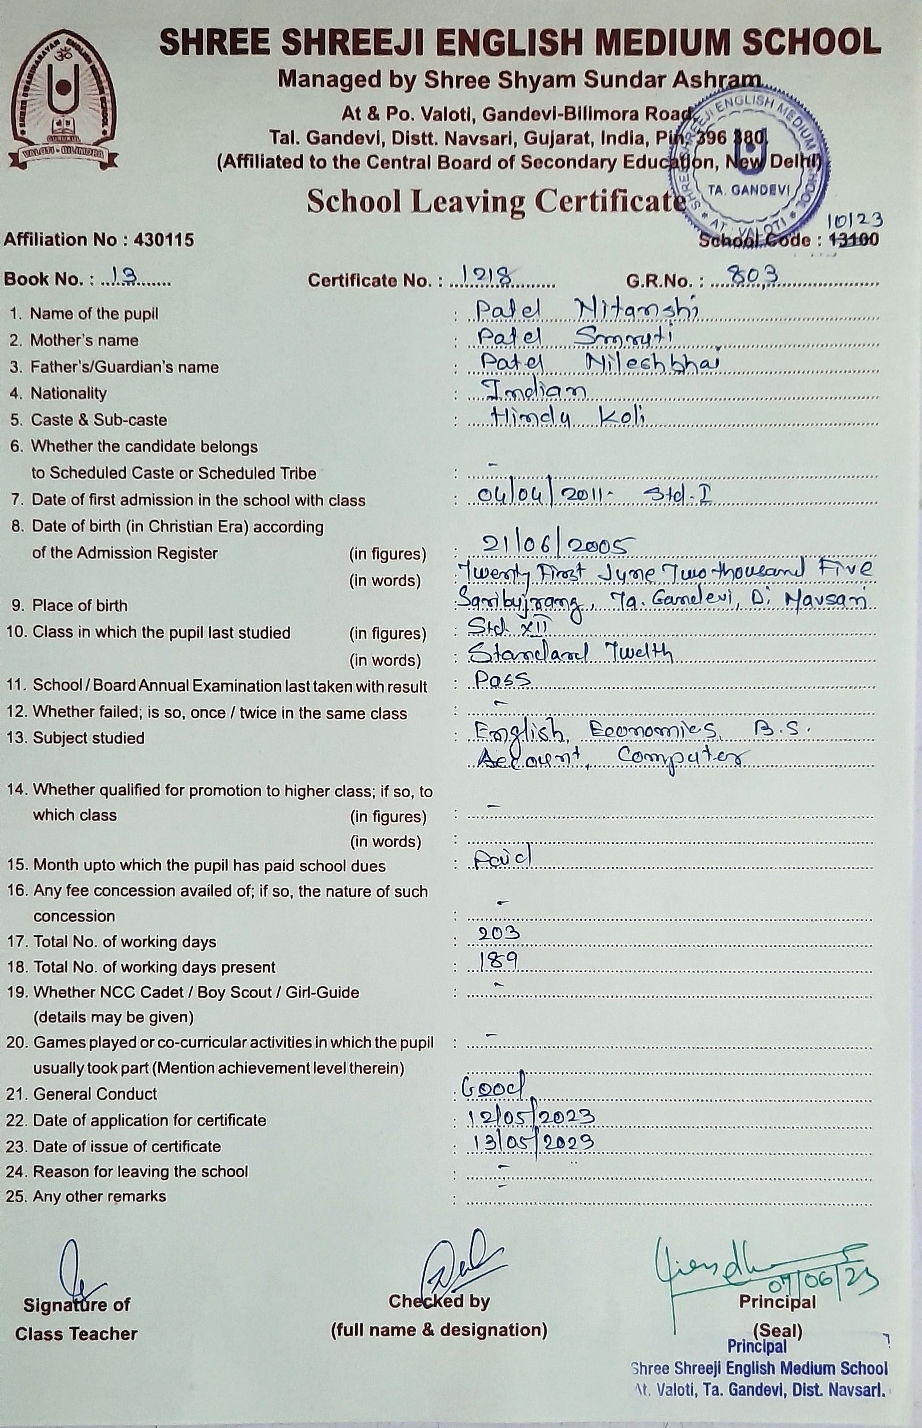 SHREE SHREEJI ENGLISH MEDIUM SCHOOL
Managed by Shree Shyam Sundar Ashram
At & Po. Valoti, Gandevi-Bilimora Road,
Tal. Gandevi, Distt. Navsari, Gujarat, India, Pin. 396 380.
(Affiliated to the Central Board of Secondary Education, New Delhi)
VALOTI - BILIMORA
SHREE SHREEJI ENGLISH MEDIUM SCHOOL
TA. GANDEVI
AT. VALOTI
School Leaving Certificate
10123
Affiliation No : 430115 School Code : 13100
Book No. : 13 Certificate No. : 1218 G.R.No. : 803
1. Name of the pupil : Patel Nitanshi
2. Mother's name : Patel Smruti
3. Father's/Guardian's name : Patel Nileshbhai
4. Nationality : Indian
5. Caste & Sub-caste : Hindu Koli
6. Whether the candidate belongs
to Scheduled Caste or Scheduled Tribe : -
7. Date of first admission in the school with class : 04/04/2011- Std-I
8. Date of birth (in Christian Era) according
of the Admission Register (in figures) : 21/06/2005
(in words) : Twenty First June Two thousand Five
9. Place of birth : Ta. Gandevi, Di Navsari
10. Class in which the pupil last studied (in figures) : Std XII
(in words) : Standard Twelth
11. School / Board Annual Examination last taken with result : Pass
12. Whether failed; is so, once / twice in the same class : -
13. Subject studied : English, Economics, B.S.
Account, Computer
14. Whether qualified for promotion to higher class; if so, to
which class (in figures) : -
(in words) :
15. Month upto which the pupil has paid school dues : Paid
16. Any fee concession availed of; if so, the nature of such
concession : -
17. Total No. of working days : 203
18. Total No. of working days present : 189
19. Whether NCC Cadet / Boy Scout / Girl-Guide : -
(details may be given)
20. Games played or co-curricular activities in which the pupil : -
usually took part (Mention achievement level therein)
21. General Conduct : Good
22. Date of application for certificate : 12/05/2023
23. Date of issue of certificate : 13/05/2023
24. Reason for leaving the school : -
25. Any other remarks : -
07/06/23
Signature of Checked by Principal
Class Teacher (full name & designation) (Seal)
Principal
Shree Shreeji English Medium School
At. Valoti, Ta. Gandevi, Dist. Navsari.